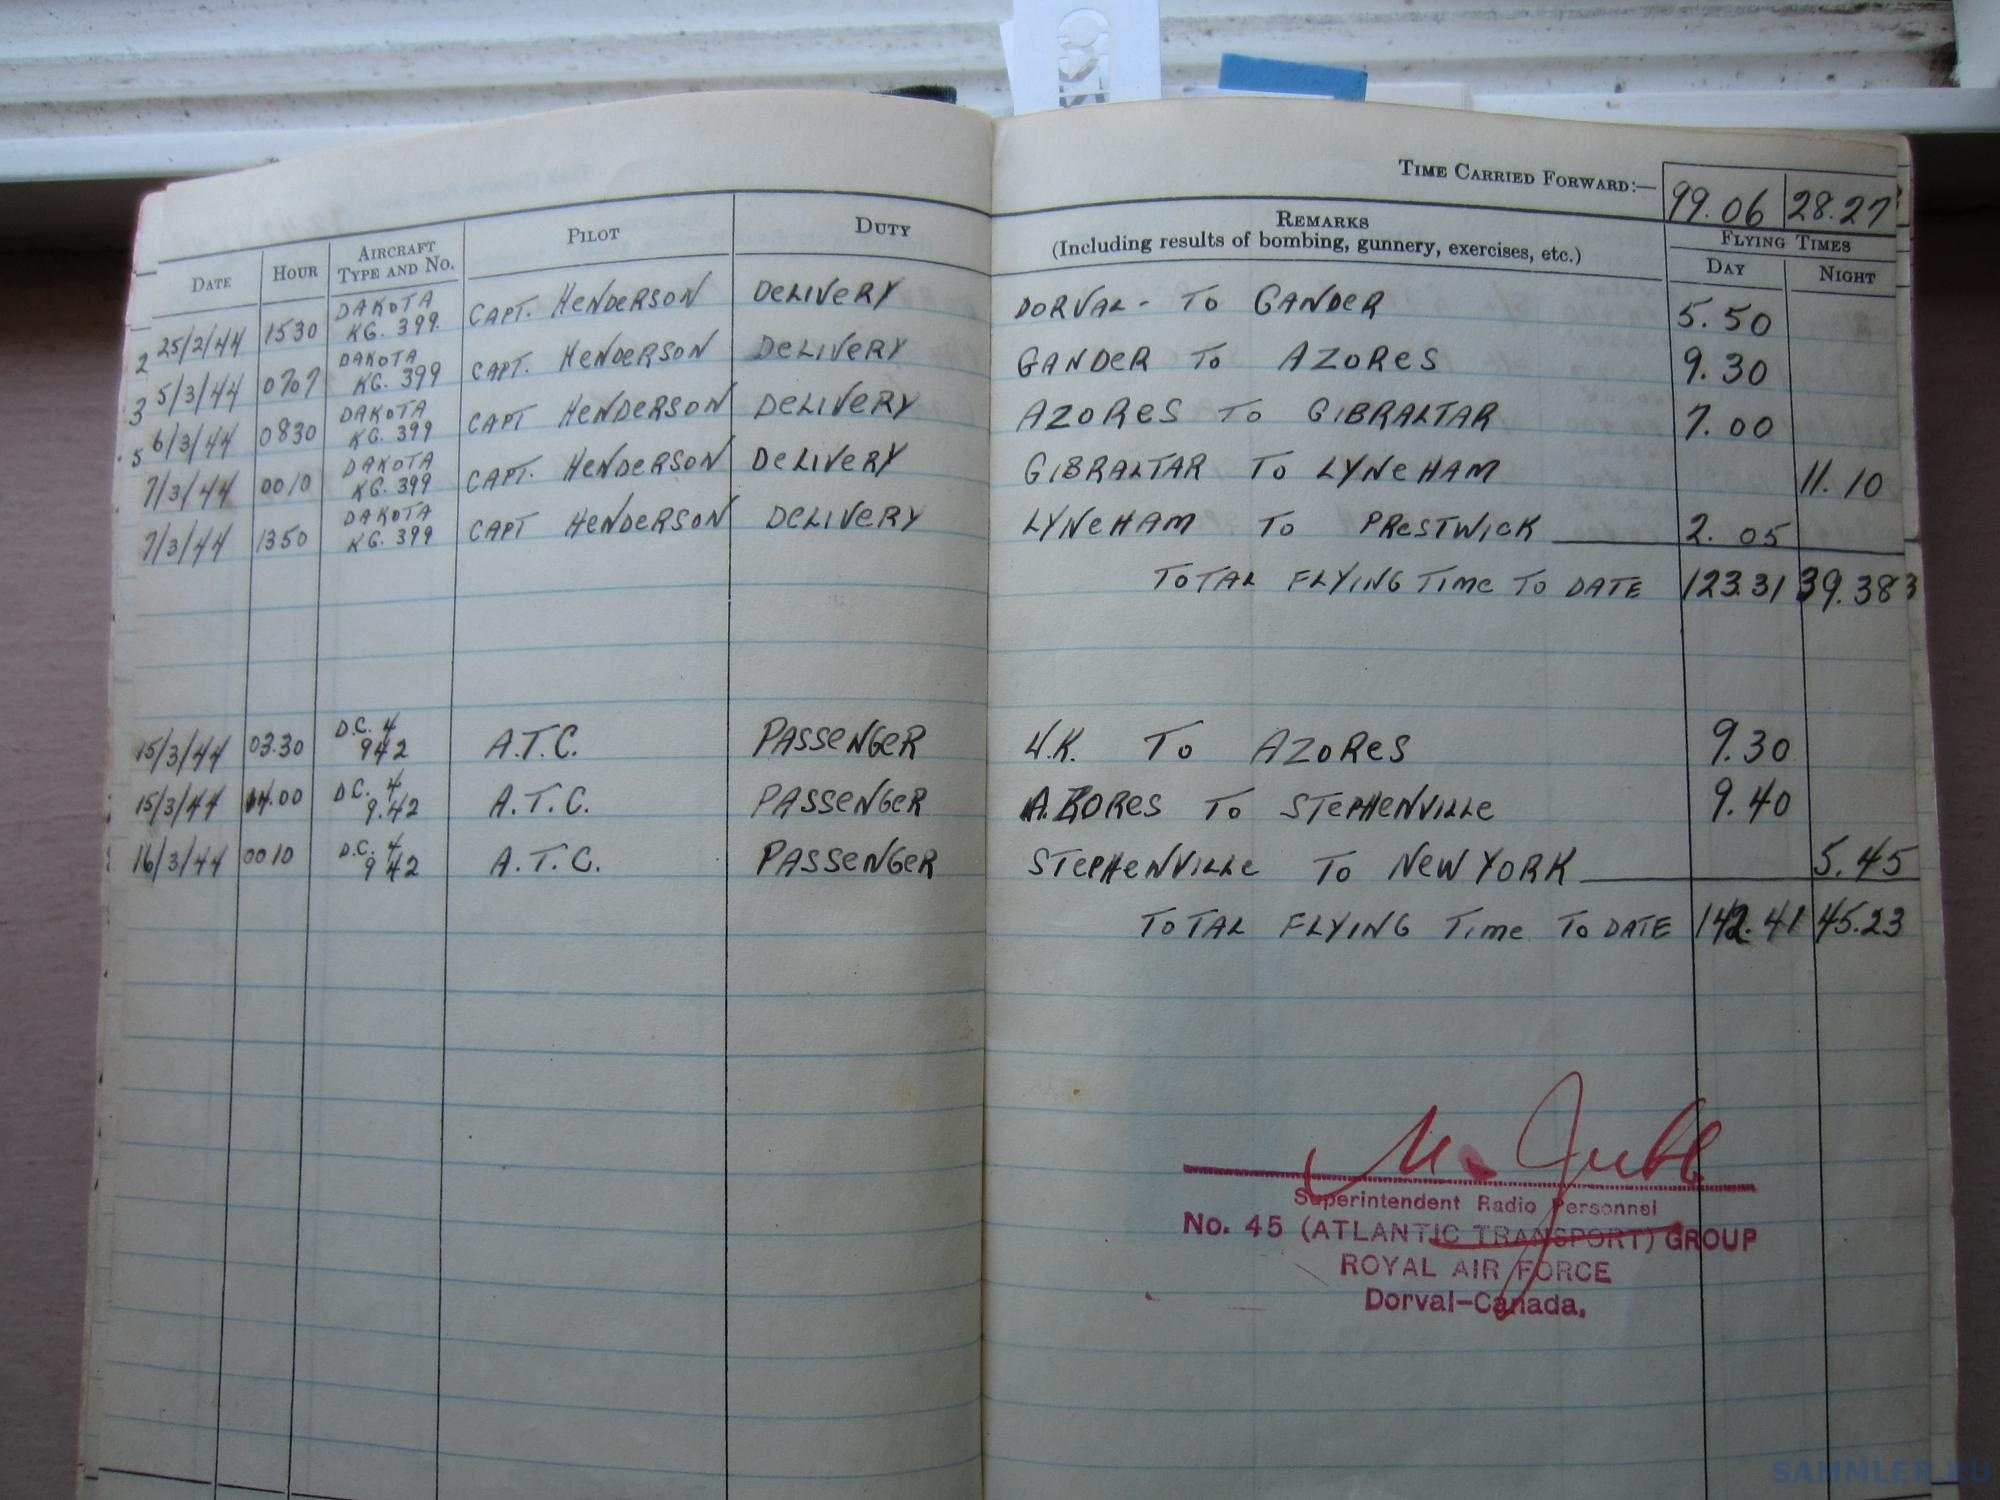 TIME CARRIED FORWARD:— 99.06 28.27
DATE HOUR AIRCRAFT TYPE AND No. PILOT DUTY REMARKS (Including results of bombing, gunnery, exercises, etc.) FLYING TIMES DAY NIGHT
25/2/44 1530 DAKOTA KG. 399. CAPT. HENDERSON DELIVERY DORVAL - TO GANDER 5.50
5/3/44 0707 DAKOTA KG. 399 CAPT. HENDERSON DELIVERY GANDER TO AZORES 9.30
6/3/44 0830 DAKOTA KG. 399 CAPT HENDERSON DELIVERY AZORES TO GIBRALTAR 7.00
7/3/44 0010 DAKOTA KG. 399 CAPT. HENDERSON DELIVERY GIBRALTAR TO LYNEHAM 11.10
7/3/44 1350 DAKOTA KG. 399 CAPT HENDERSON DELIVERY LYNEHAM TO PRESTWICK 2.05
TOTAL FLYING TIME TO DATE 123.31 39.38
15/3/44 03.30 D.C. 4 942 A.T.C. PASSENGER U.K. TO AZORES 9.30
15/3/44 14.00 D.C. 4 9.42 A.T.C. PASSENGER AZORES TO STEPHENVILLE 9.40
16/3/44 0010 D.C. 4 942 A.T.C. PASSENGER STEPHENVILLE TO NEW YORK 5.45
TOTAL FLYING TIME TO DATE 142.41 45.23
Superintendent Radio Personnel
No. 45 (ATLANTIC TRANSPORT) GROUP
ROYAL AIR FORCE
Dorval-Canada.
SAMMLER.RU